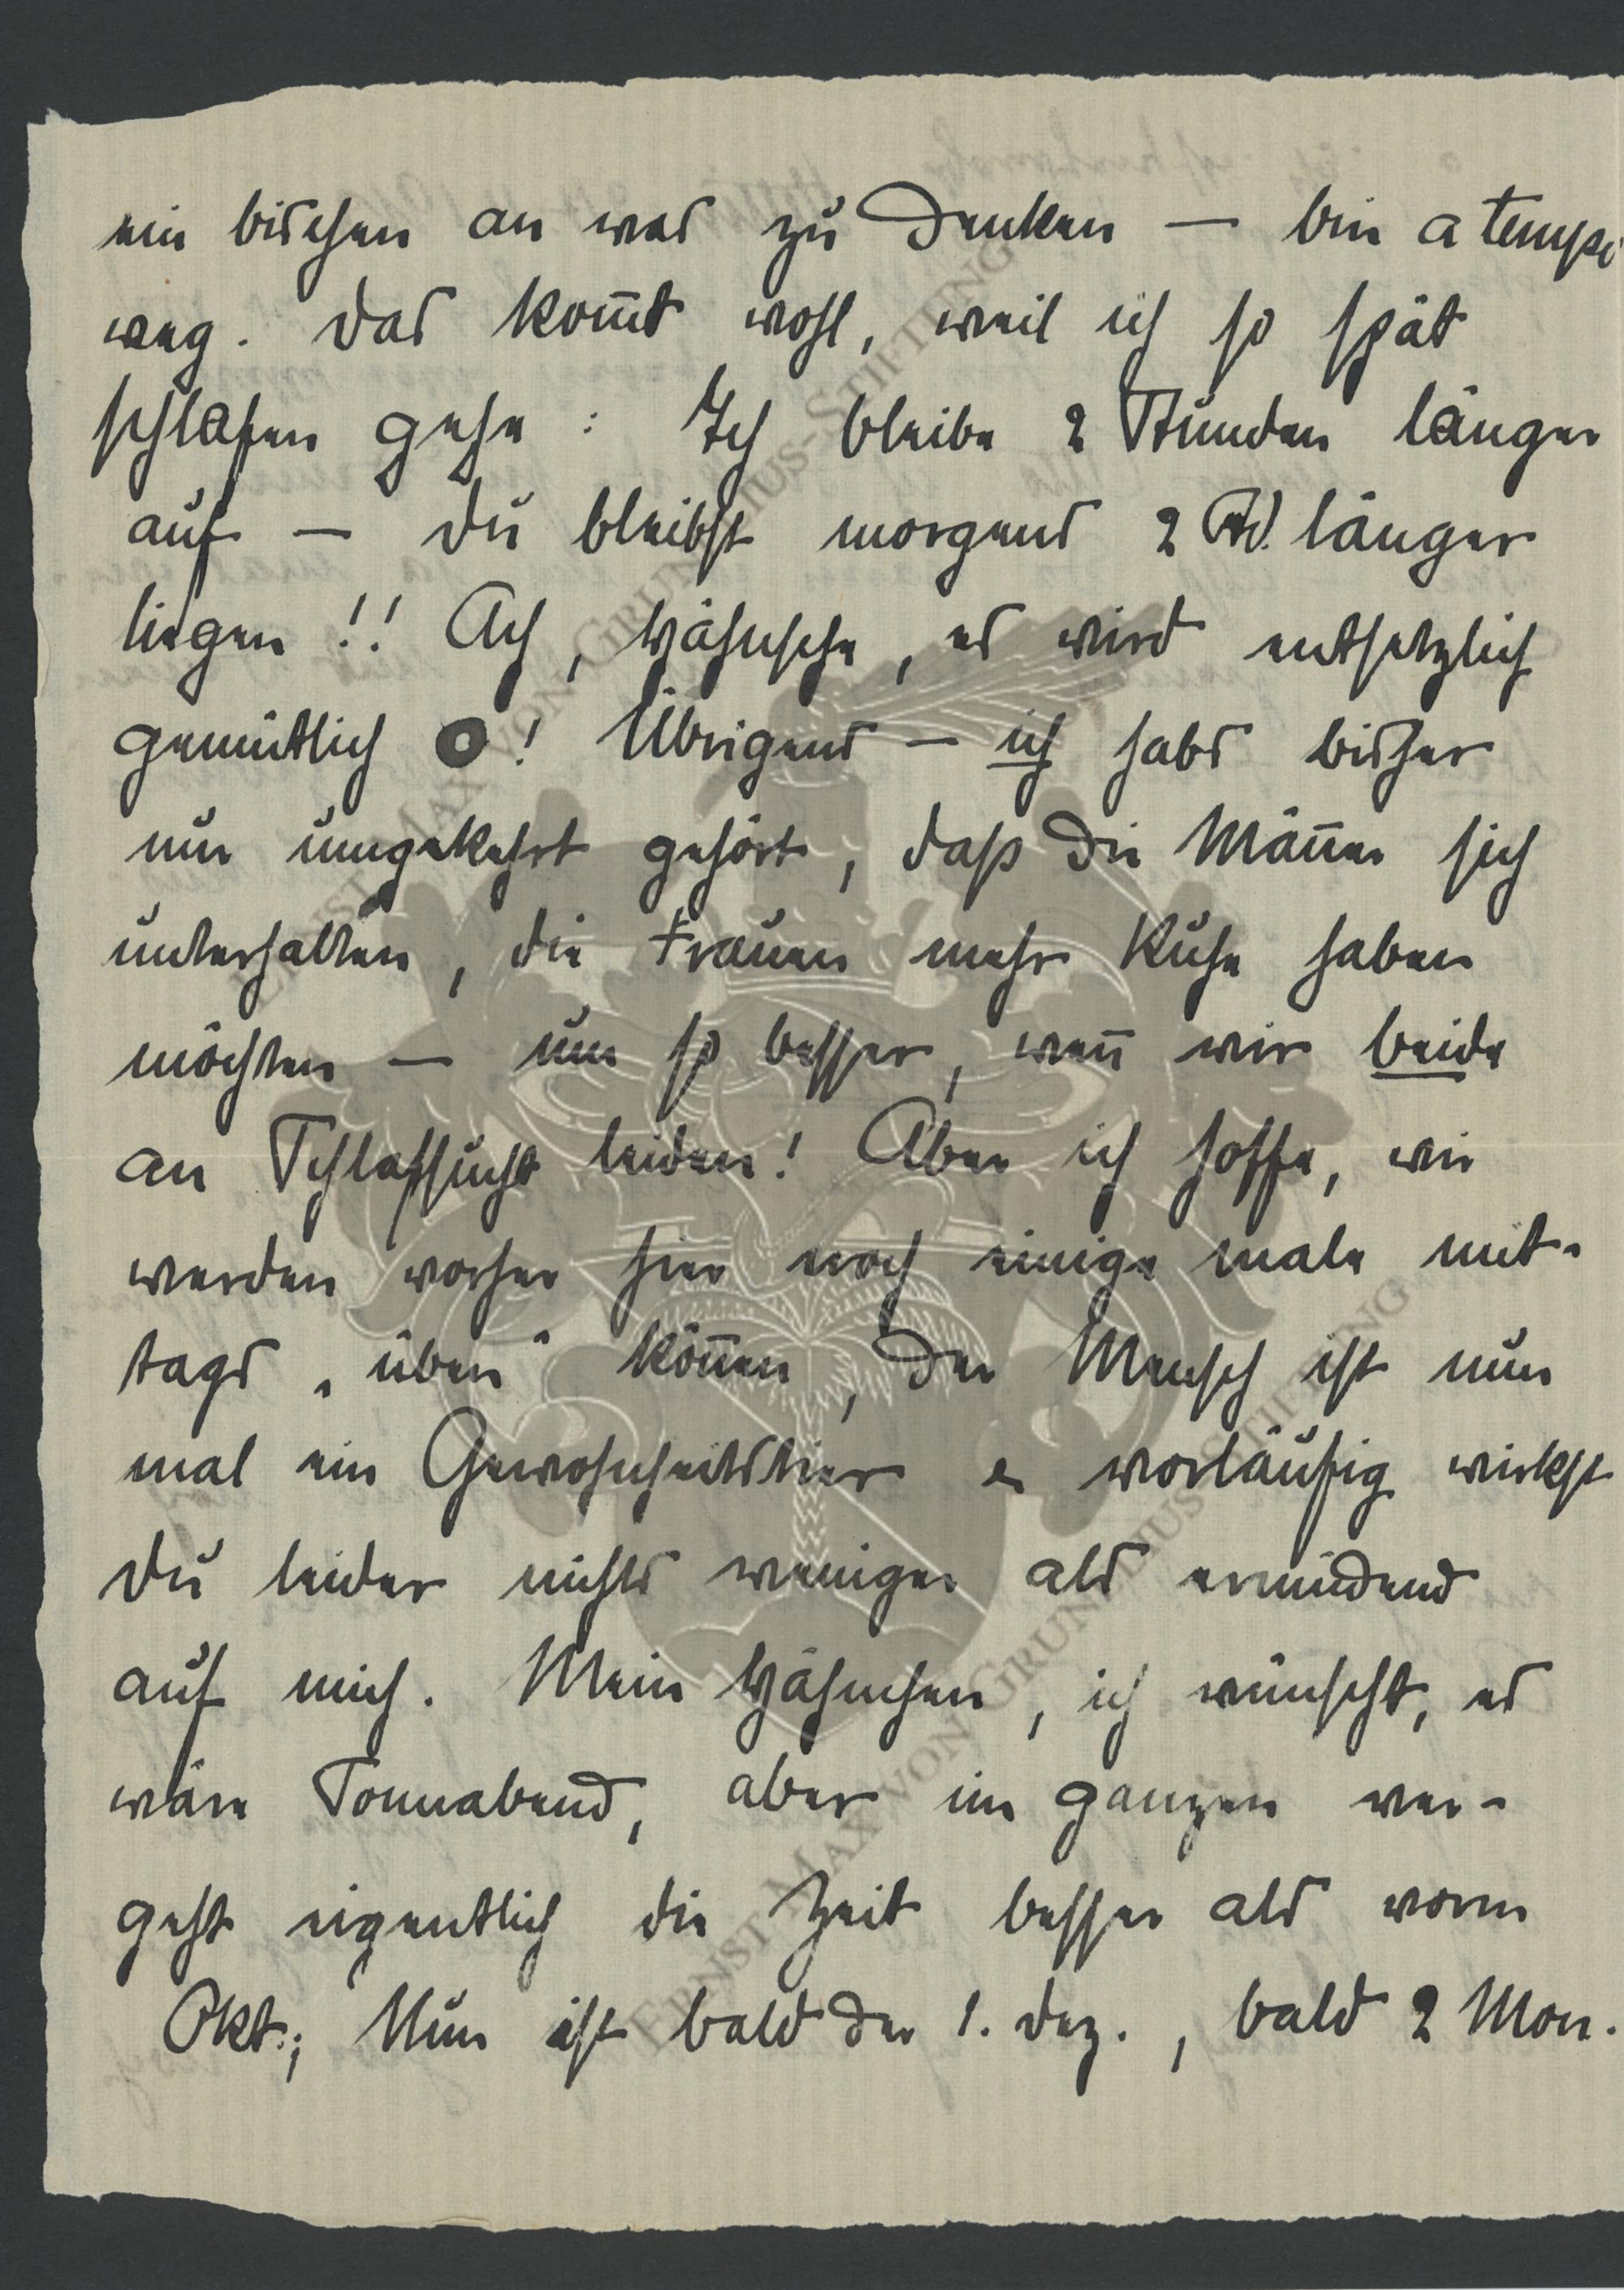 ein bischen an was zu denken — bin a tempo
weg. Das kom̅t wohl, weil ich so spät
schlafen gehe : Ich bleibe 2 Stunden länger
auf — Du bleibst morgens 2 Std. länger
liegen !! Ach, Hähnsche, es wird entsetzlich
gemütlich o! Übrigens — ich habs bisher
nur umgekehrt gehört, daß die Män̅er sich
unterhalten, die Frauen mehr Ruhe haben
möchten — um so besser, wen̅ wir beide
an Schlafsucht leiden! Aber ich hoffe, wir
werden vorher hier noch einige male mit-
tags „üben“ kön̅en, der Mensch ist nun
mal ein Gewohnheitstier & vorläufig wirkst
Du leider nichts weniger als ermüdend
auf mich. Mein Hähnchen, ich wünscht, es
wäre Sonnabend, aber im ganzen ver-
geht eigentlich die Zeit besser als vorm
Okt.; Nun ist bald der 1. Dez., bald 2 Mon.
ERNST-MAX-VON-GRUNELIUS-STIFTUNG
ERNST-MAX-VON-GRUNELIUS-STIFTUNG